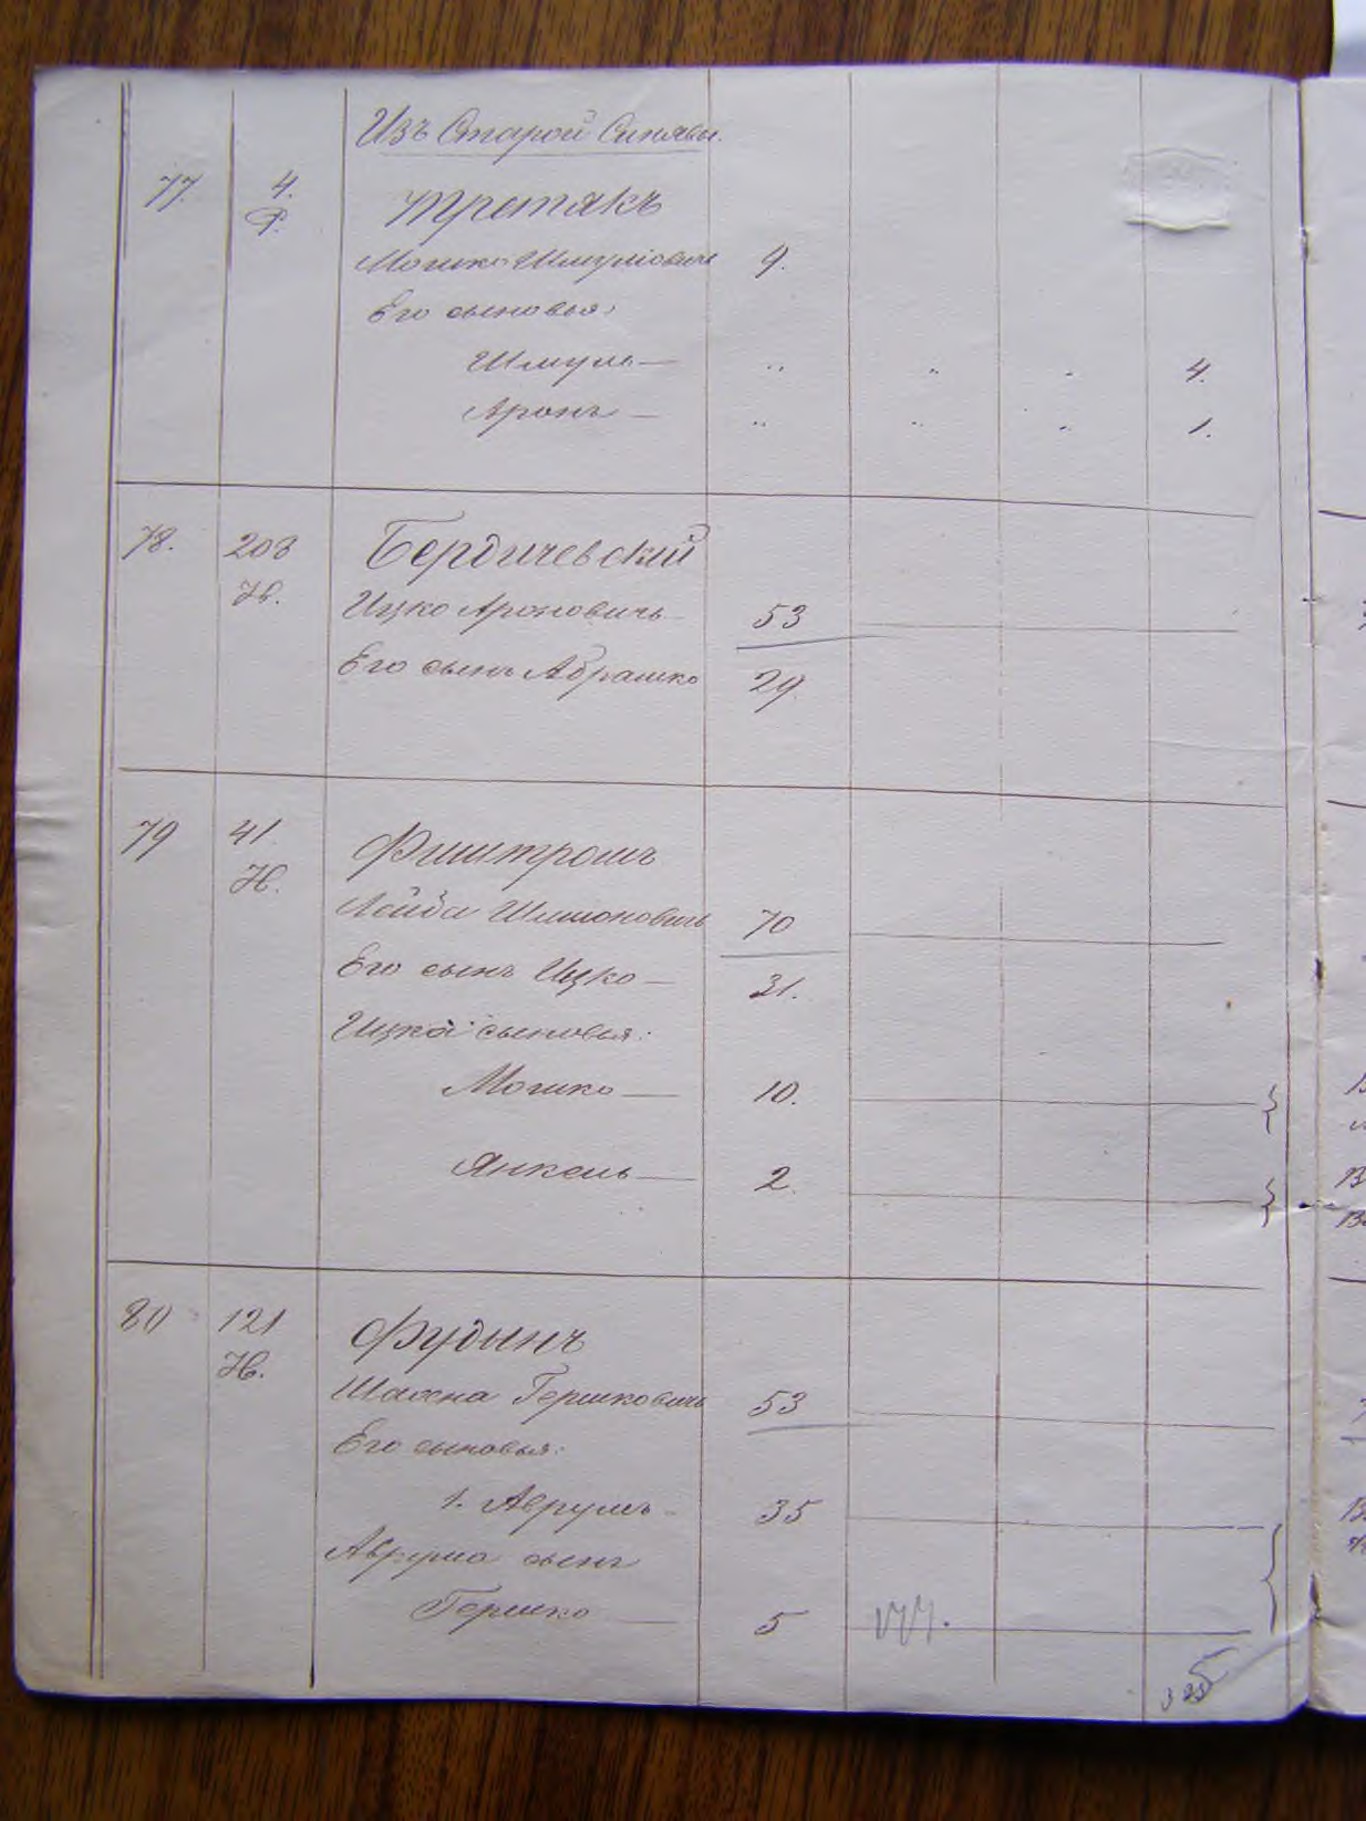 Изъ Старой Синявы.
77. 4. Третякъ
Р.
Мошко Шмулiовичъ 9.
Его сыновья:
Шмуль — " " " 4.
Аронъ — " " " 1.
78. 203 Бердичевскiй
Н.
Ицко Ароновичъ 53
Его сынъ Абрашко 29.
79 41. Фиштромъ
Н.
Лейба Шлiомовичъ 70
Его сынъ Ицко — 31.
Ицка сыновья:
Мошко — 10.
Янкель — 2.
80 121 Фудымъ
Н.
Гершковичъ 53
Его сыновья:
1. Аврумъ — 35
Аврума сынъ
Гершко — 5